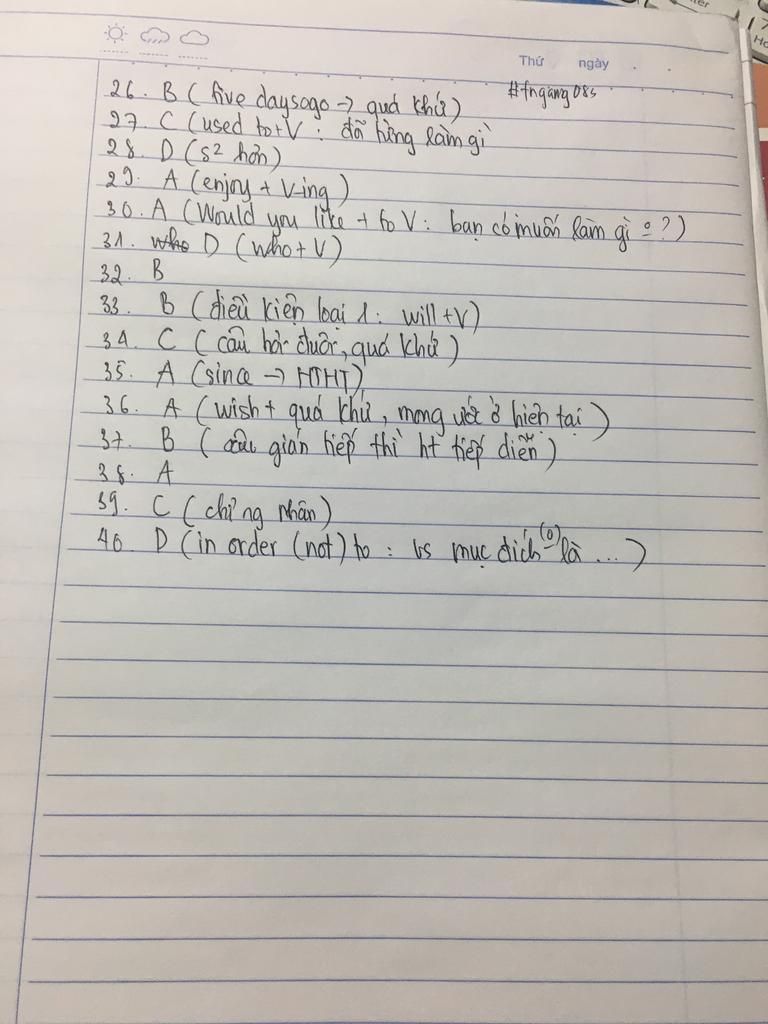 Thứ ngày
#fngang083
26. B ( five daysago → quá khứ)
27. C (used to+V : đã từng làm gì
28. D (s² hơn)
29. A (enjoy + V-ing)
30. A (Would you like + to V : bạn có muốn làm gì ? )
31. who D (who+V)
32. B
33. B (điều kiện loại 1: will+V)
34. C ( câu hỏi đuôi, quá khứ )
35. A (since → HTHT)
36. A (wish + quá khứ, mong ước ở hiện tại )
37. B ( câu gián tiếp thì ht tiếp diễn )
38. A
39. C ( chứng nhân )
40. D (in order (not) to : vs mục đích (0) là ... )